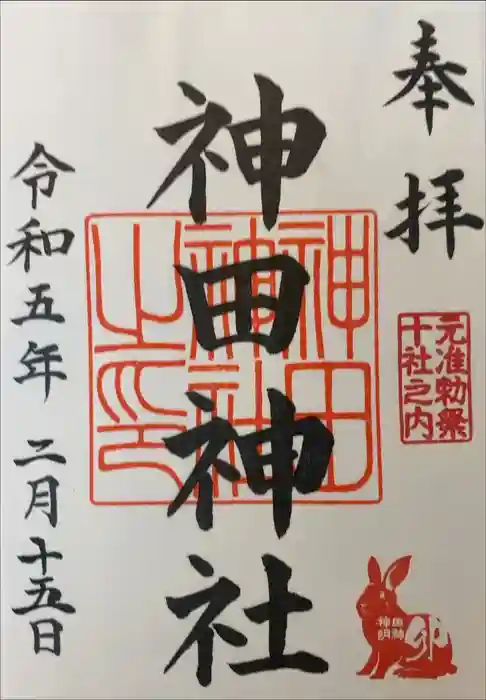 奉拝
元准勅祭
十社之内
神田神社
神田神社之印
令和五年 二月十五日
卯